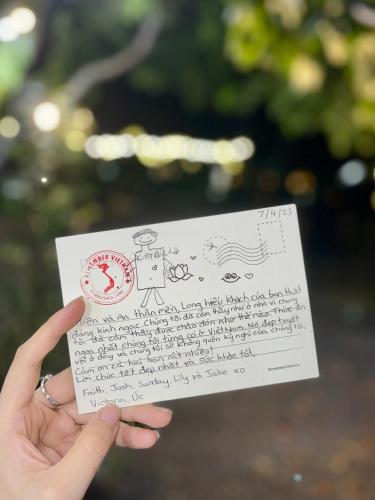 7/4/23
REMEMBER VIETNAM
ESTABLISHED
Hiên và An thân mến, Lòng hiếu khách của bạn thật
đáng kinh ngạc. Chúng tôi đã cảm thấy như ở nhà vì chúng
tôi đã cảm thấy được chào đón như thế nào. Thức ăn
ngon nhất chúng tôi từng có ở Việt Nam. Nó đẹp tuyệt
vời ở đây và chúng tôi sẽ không quên kỳ nghỉ của chúng tôi,
Cảm ơn cả hai bạn rất nhiều!
Lời chúc tốt đẹp nhất và sức khỏe tốt,
Faith, Josh, Sunday, Lily và Jake xo
Victoria, Úc